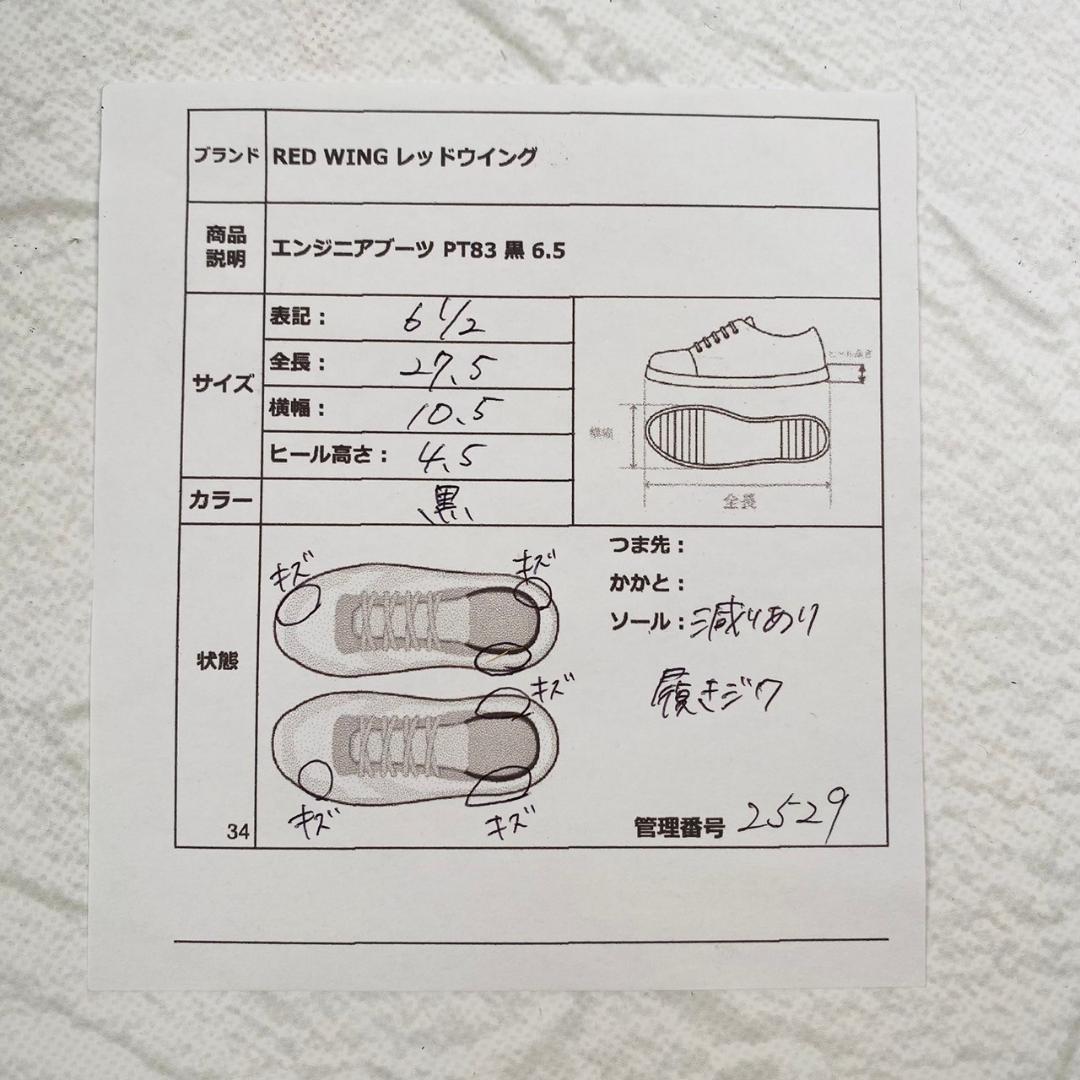 ブランド RED WING レッドウイング
商品
説明
エンジニアブーツ PT83 黒 6.5
サイズ
表記： 6 1/2
全長： 27.5
横幅： 10.5
ヒール高さ： 4.5
ヒール高さ
横幅
全長
カラー 黒
状態
キズ キズ
キズ
キズ キズ
つま先：
かかと：
ソール：減りあり
履きジワ
管理番号 2529
34